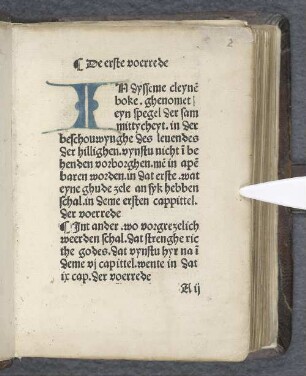 2
¶ De erste voerrede
IN dysseme cleynē
boke, ghenomet /
eyn spegel der sam
mittycheyt. in der
beschouwynghe des leuendes
der hillighen. vynstu nicht i be
henden vorborghen. mē in apē
baren worden. in dat erste. wat
eyne ghude zele an syk hebben
schal. in deme ersten cappittel.
der voerrede
¶ Int ander. wo vorgrezelich
weerden schal. dat strenghe ric
the godes. dat vynstu hyr na i
deme vj capittel. wente in dat
ix cap. der voerrede
A ij